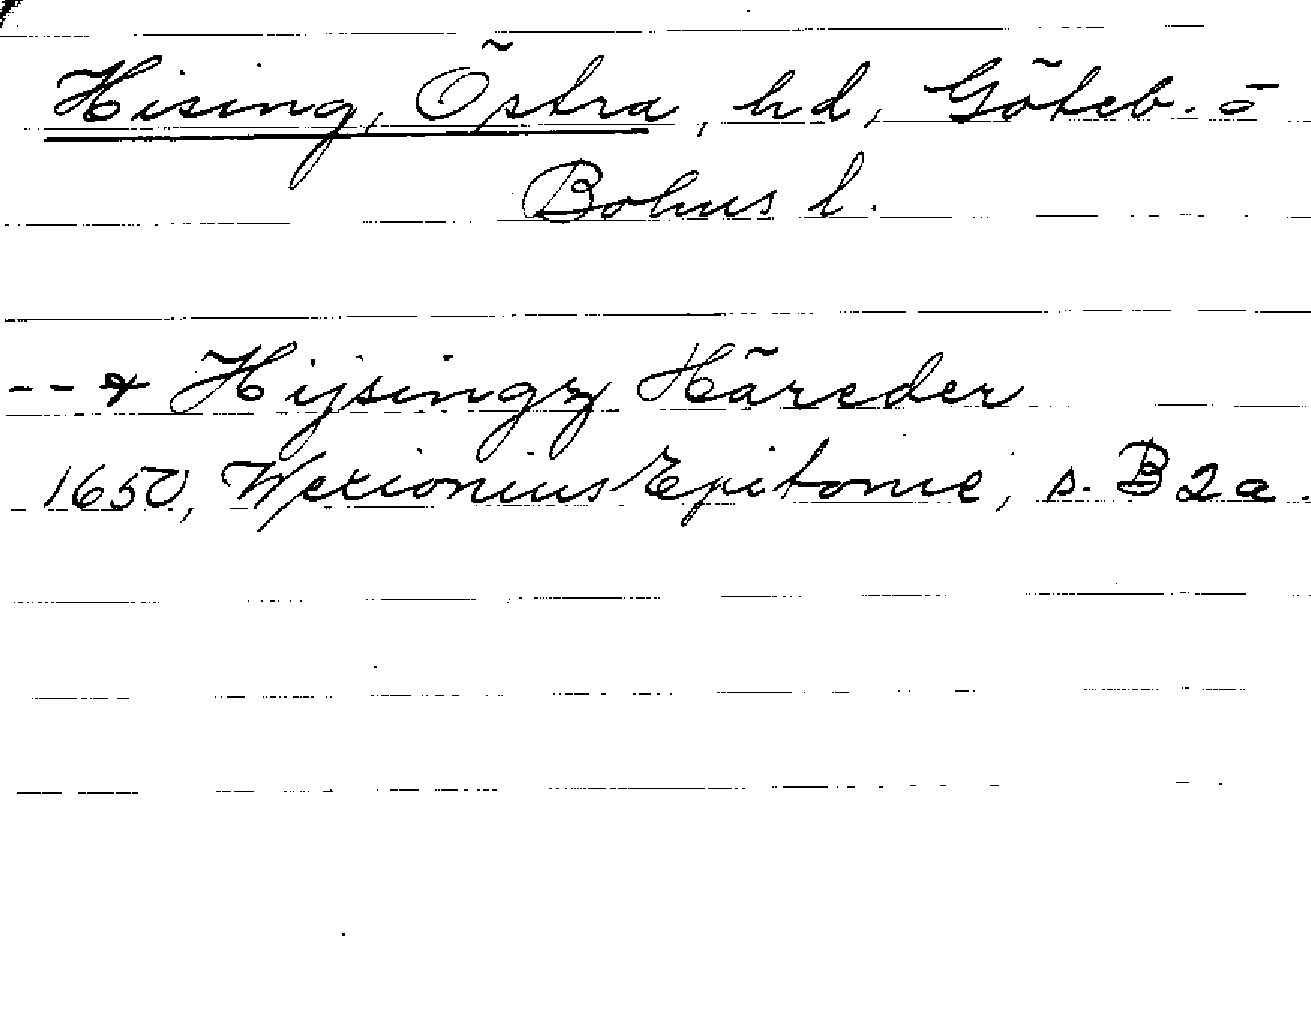 Hising, Östra, hd, Göteb. o
Bohus l.
-- & Hijsingz Häreder
1650, Wexionius Epitome, s. B 2 a.